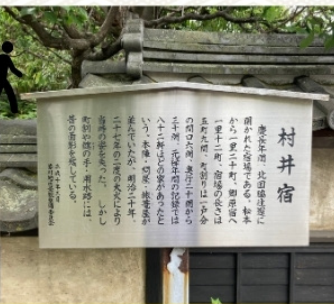 村井宿
慶長年間、北国脇往還に
開かれた宿場である。松本
から一里二十町、郷原宿へ
一里十二町、宿場の長さは
五町九間、町割りは一戸分
の間口六間、奥行二十間から
三十間、元禄年間の記録では
八十二軒ほどの家があったと
いう。本陣・問屋・旅籠屋が
並んでいたが、明治二十年、
二十七年の二度の大火により
当時の姿を失った。しかし
町割や鍵の手、用水路には、
昔の面影を残している。